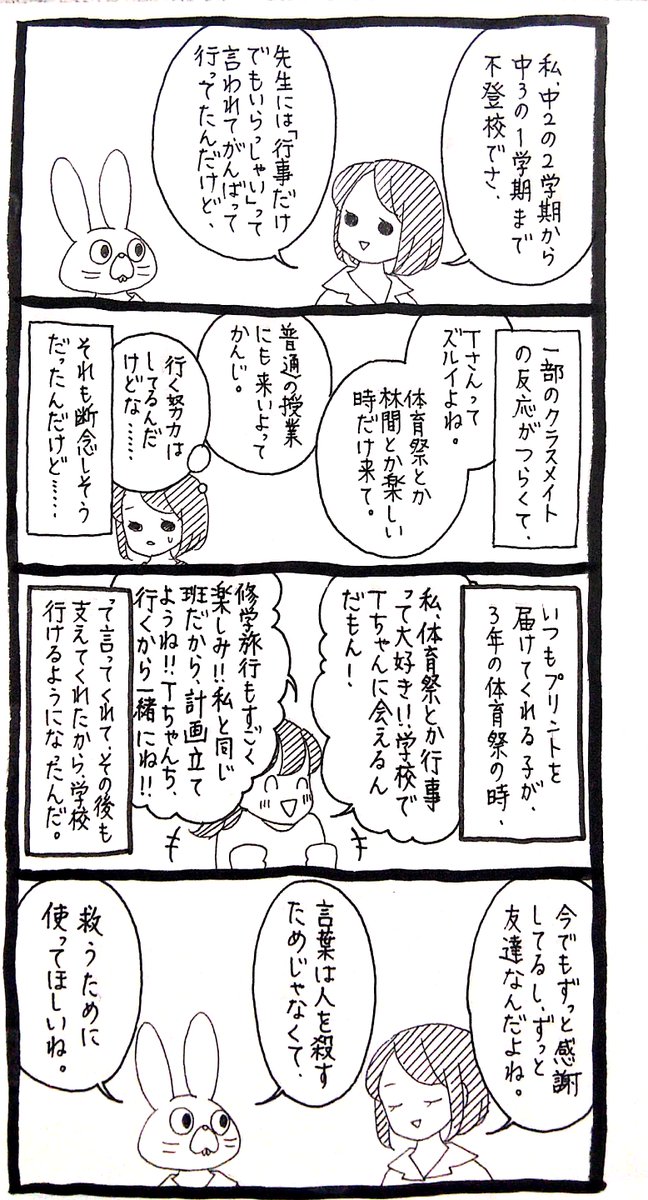 私、中2の2学期から
中3の1学期まで
不登校でさ、
先生には「行事だけ
でもいらっしゃい」って
言われて、がんばって
行ってたんだけど、
一部のクラスメイト
の反応がつらくて、
Tさんって
ズルイよね。
体育祭とか
林間とか楽しい
時だけ来て。
普通の授業
にも来いよって
かんじ。
行く努力は
してるんだ
けどな……
それも断念しそう
だったんだけど……
いつもプリントを
届けてくれる子が、
3年の体育祭の時、
私、体育祭とか行事
って大好き!!学校で
Tちゃんに会えるん
だもん!
修学旅行もすごく
楽しみ!!私と同じ
班だから、計画立て
ようね!!Tちゃんち、
行くから一緒にね!!
って言ってくれて、その後も
支えてくれたから、学校
行けるようになったんだ。
今でもずっと感謝
してるし、ずっと
友達なんだよね。
言葉は人を殺す
ためじゃなくて、
救うために
使ってほしいね。